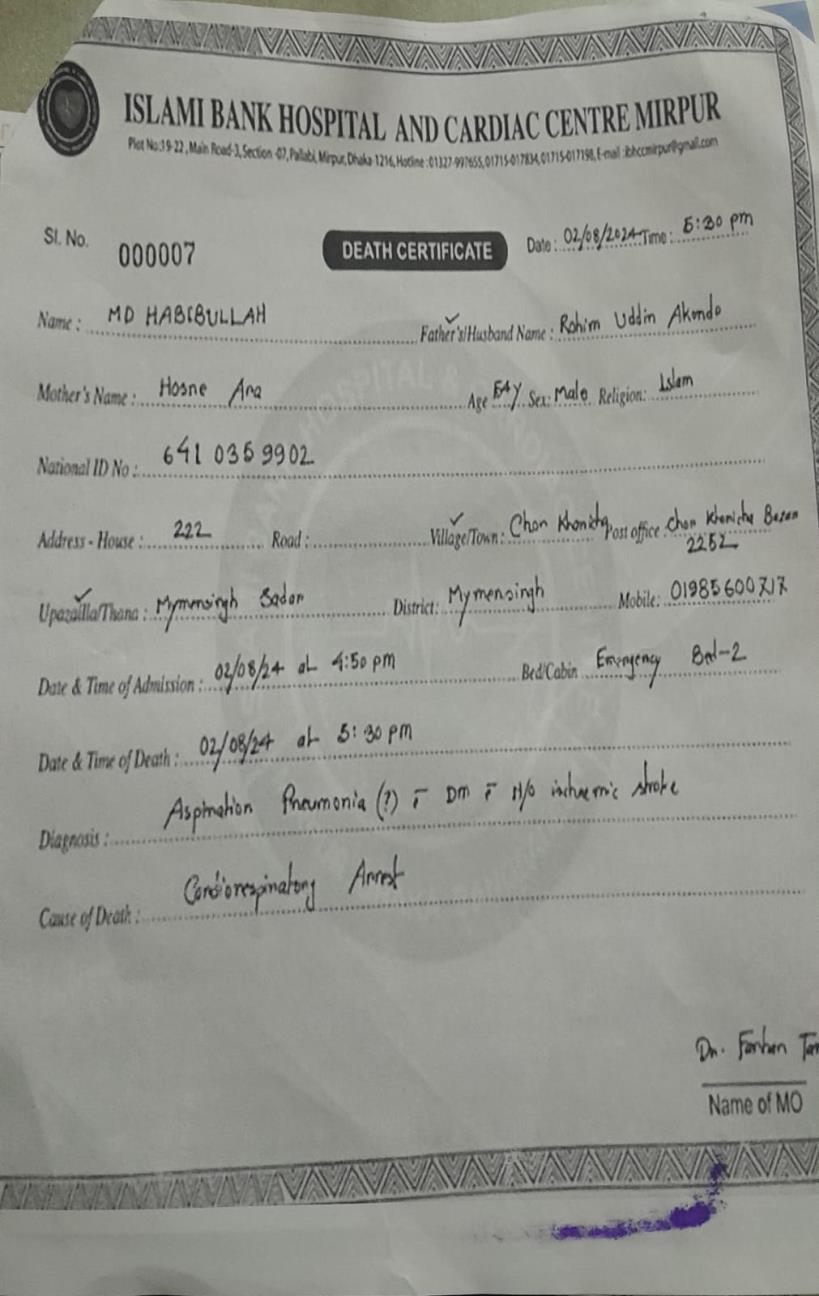 ISLAMI BANK HOSPITAL AND CARDIAC CENTRE MIRPUR
Plot No:19-22, Main Road-3, Section -07, Pallabi, Mirpur, Dhaka-1216, Hotline : 01327-997655, 01715-017834, 01715-017198, E-mail : ibhccmirpur@gmail.com
Sl. No. 000007 DEATH CERTIFICATE Date : 02/08/2024 Time : 5:30 pm
Name : MD HABIBULLAH Father's/Husband Name : Rohim Uddin Akondo
Mother's Name : Hosne Ara Age 54Y Sex: Male Religion: Islam
National ID No : 641 035 9902
Address - House : 222 Road : Village/Town : Chor Post office : Chor Bazar 2252
Upazailla/Thana : Mymensingh Sadar District: Mymensingh Mobile: 01985600717
Date & Time of Admission : 02/08/24 at 4:50 pm Bed/Cabin Emergency Bed-2
Date & Time of Death : 02/08/24 at 5:30 pm
Diagnosis : Aspiration Pneumonia (?) c̄ DM c̄ H/o ischaemic stroke
Cause of Death : Cardiorespiratory Arrest
Dr. Farhan
Name of MO